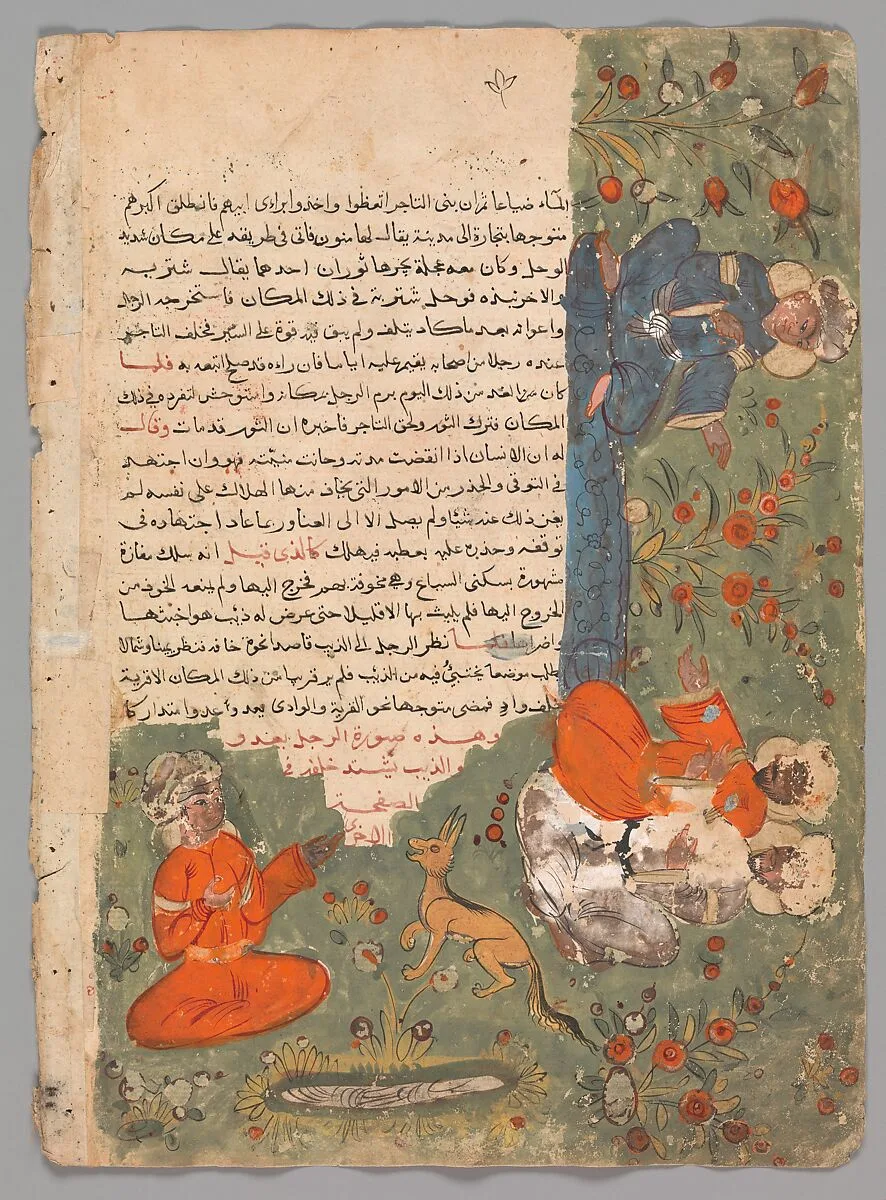 المآء ضياعا ثم ان بنى التاجر اتعظوا واخذوا براى ابيهم فانطلق اكبرهم
متوجها بتجارة الى مدينة يقال لها منون فاتى فى طريقه على مكان شديد
الوحل وكان معه عجلة يجرها ثوران احدهما يقال شتربه
والاخر بنذه فوحل شتربة فى ذلك المكان فاستخرجه الرجل
واعوانه بعد ما كاد يتلف ولم يبق فيه قوة على السير فخلف التاجر
عنده رجلا من اصحابه يقيم عليه اياما فان راه قد صلح اتبعه به فلما
كان من الغد من ذلك اليوم برم الرجل بمكانه واستوحش لتفرده فى ذلك
المكان فترك الثور ولحق التاجر فاخبره ان الثور قد مات وقال
له ان الانسان اذا انقضت مدته وحانت منيته فهو وان اجتهد
فى التوقى والحذر من الامور التى يخاف منها الهلاك على نفسه لم
يغن ذلك عنه شيئا ولم يصل الا الى العنا وربما عاد اجتهاده فى
توقفه وحذره عليه بعطبه فيهلك كالذى قيل انه سلك مفازة
مشهورة بسكنى السباع وهى مخوفة بهم فخرج اليها ولم يمنعه الخوف من
الخروج اليها فلم يلبث بها الا قليلا حتى عرض له ذيب هو اخبثها
واضراها فلما نظر الرجل الى الذيب قاصدا نحوه خافه فنظر يمينا وشمالا
يطلب موضعا يختبئ فيه من الذيب فلم ير قريبا من ذلك المكان الا قرية
خلف واد فمضى متوجها نحو القرية والوادى يعدو
وهذه صورة الرجل يعدو
والذيب يشتد خلفه فى
الصفحة
الاخرى